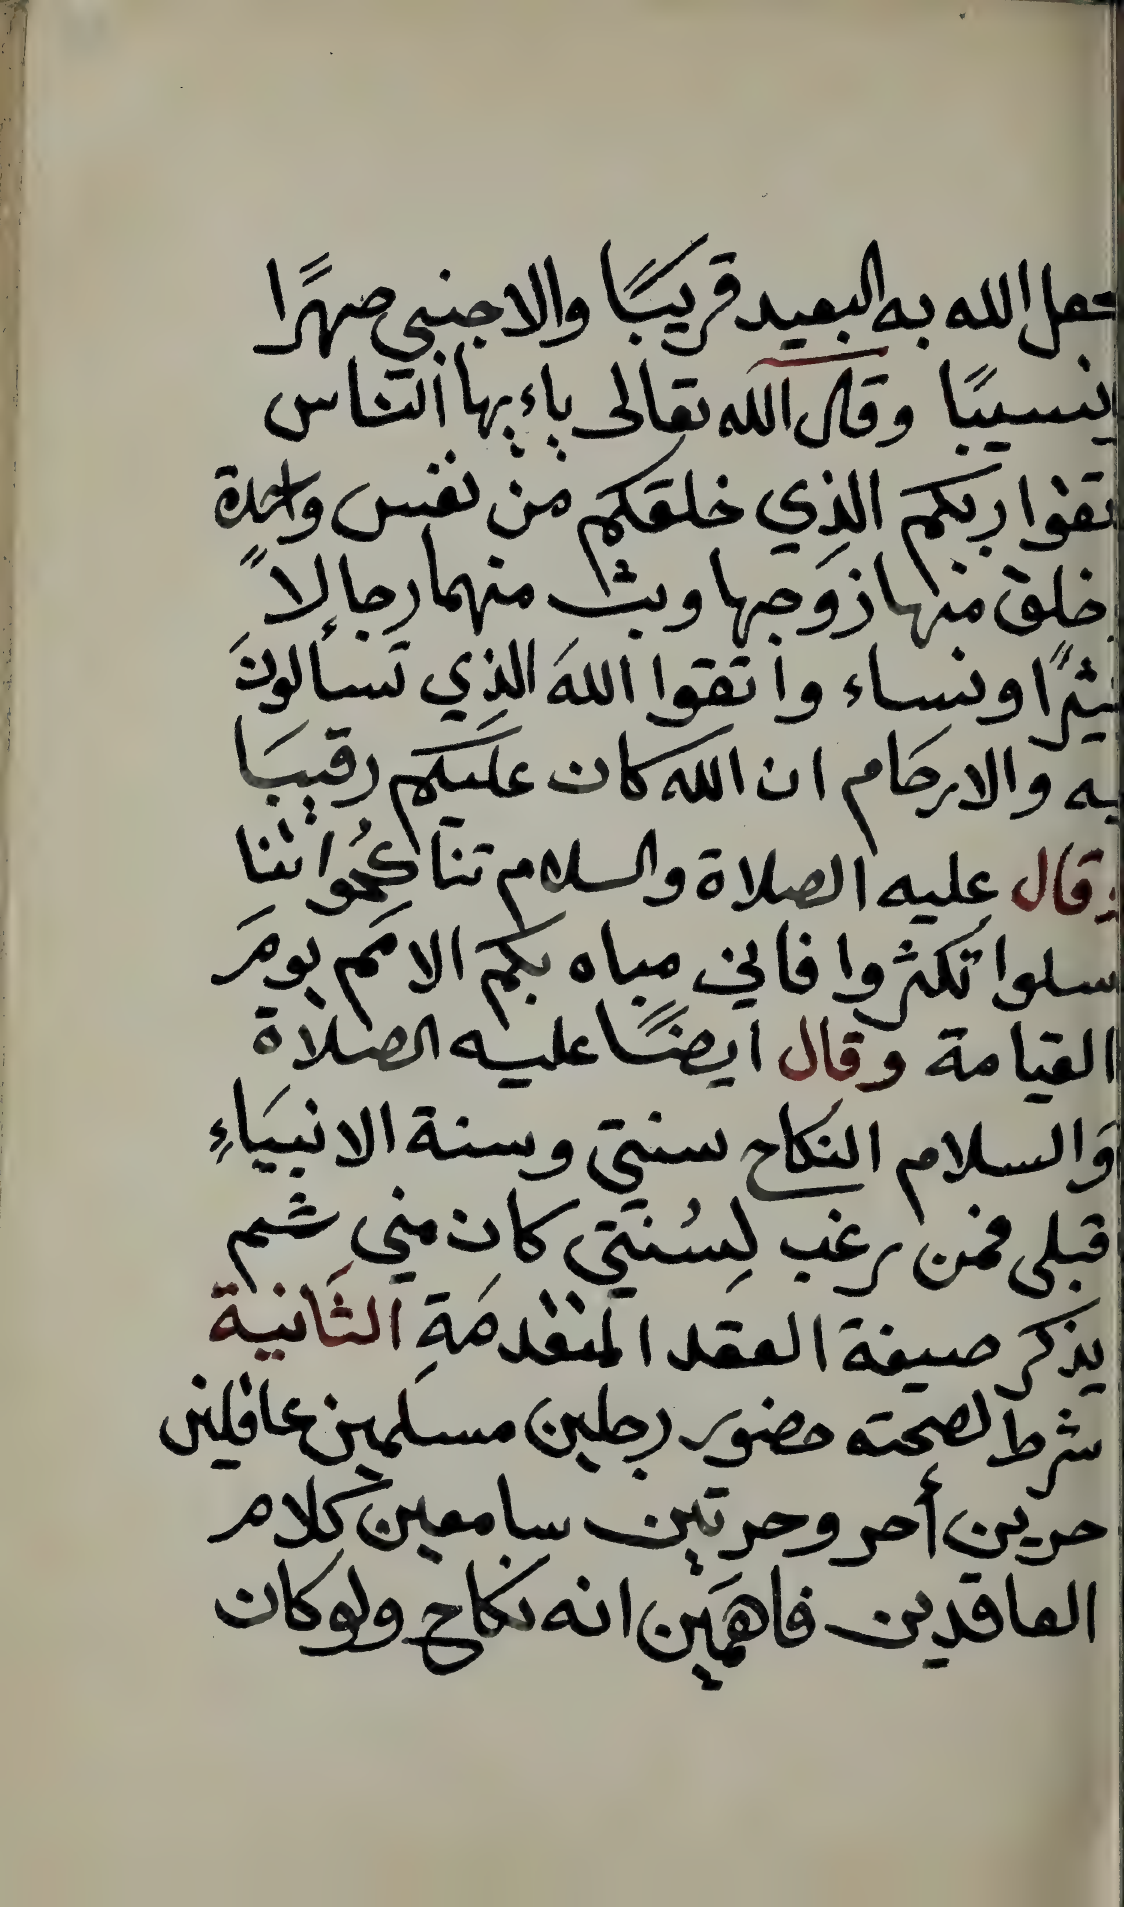 جعل الله به البعيد قريبًا والاجنبي صهرًا
نسيبًا وقال الله تعالى ياءيها الناس
اتقوا ربكم الذي خلقكم من نفس واحدة
وخلق منها زوجها وبث منهما رجالاً
كثيرًا ونساء واتقوا الله الذي تسألون
به والارحام ان الله كان عليكم رقيبا
وقال عليه الصلاة والسلام تناكحوا تنا
سلوا تكثروا فاني مباه بكم الامم يوم
القيامة وقال ايضًا عليه الصلاة
والسلام النكاح سنتي وسنة الانبياء
قبلي فمن رغب لسُنتي كان مني ثم
يذكر صيغة العقد المتقدمة الثانية
شرط لصحته حضور رجلين مسلمين عاقلين
حرين أحر وحرتين سامعين كلام
العاقدين فاهمين انه نكاح ولو كان